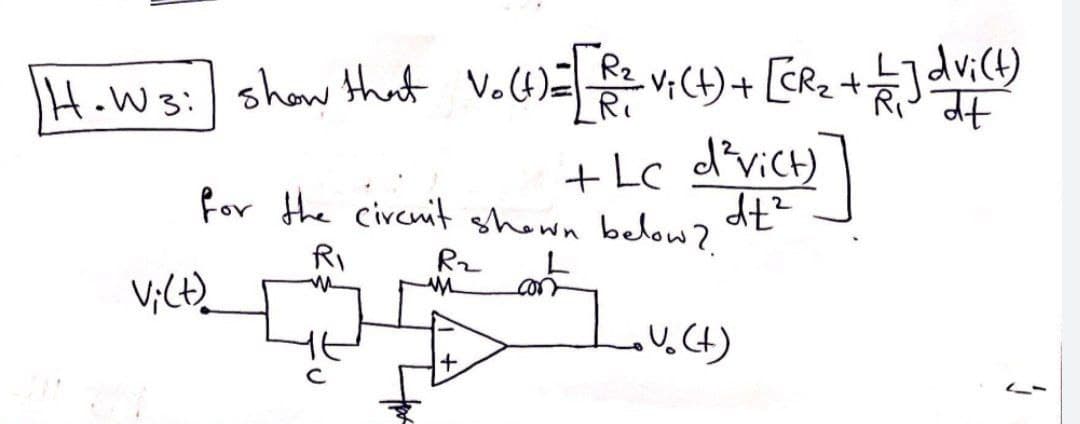 H.W3: show that Vo(t)=[R2/R1 Vi(t) + [CR2 + L/R1] dvi(t)/dt
+ LC d²vi(t)/dt²]
for the circuit shown below?
R1 R2 L
Vi(t)
- Vo(t)
C +